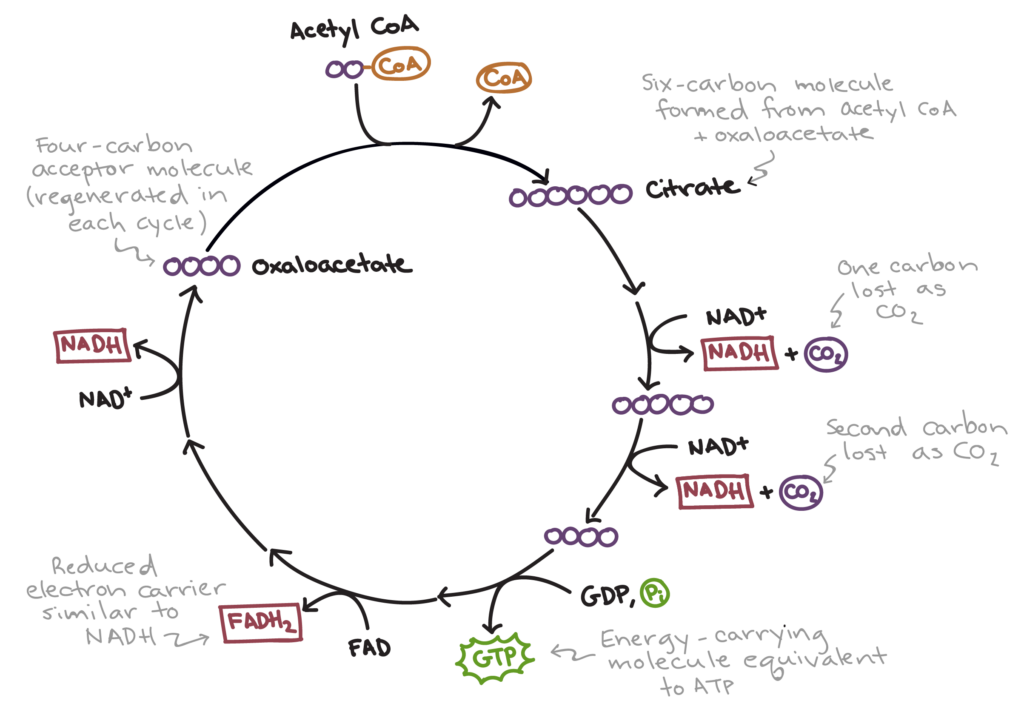 Acetyl CoA
CoA
CoA
Six-carbon molecule
formed from acetyl CoA
+ oxaloacetate
Citrate
Four-carbon
acceptor molecule
(regenerated in
each cycle)
Oxaloacetate
One carbon
lost as
CO2
NAD+
NADH + CO2
Second carbon
lost as CO2
NAD+
NADH + CO2
GDP, Pi
GTP
Energy-carrying
molecule equivalent
to ATP
FAD
FADH2
Reduced
electron carrier
similar to
NADH
NAD+
NADH